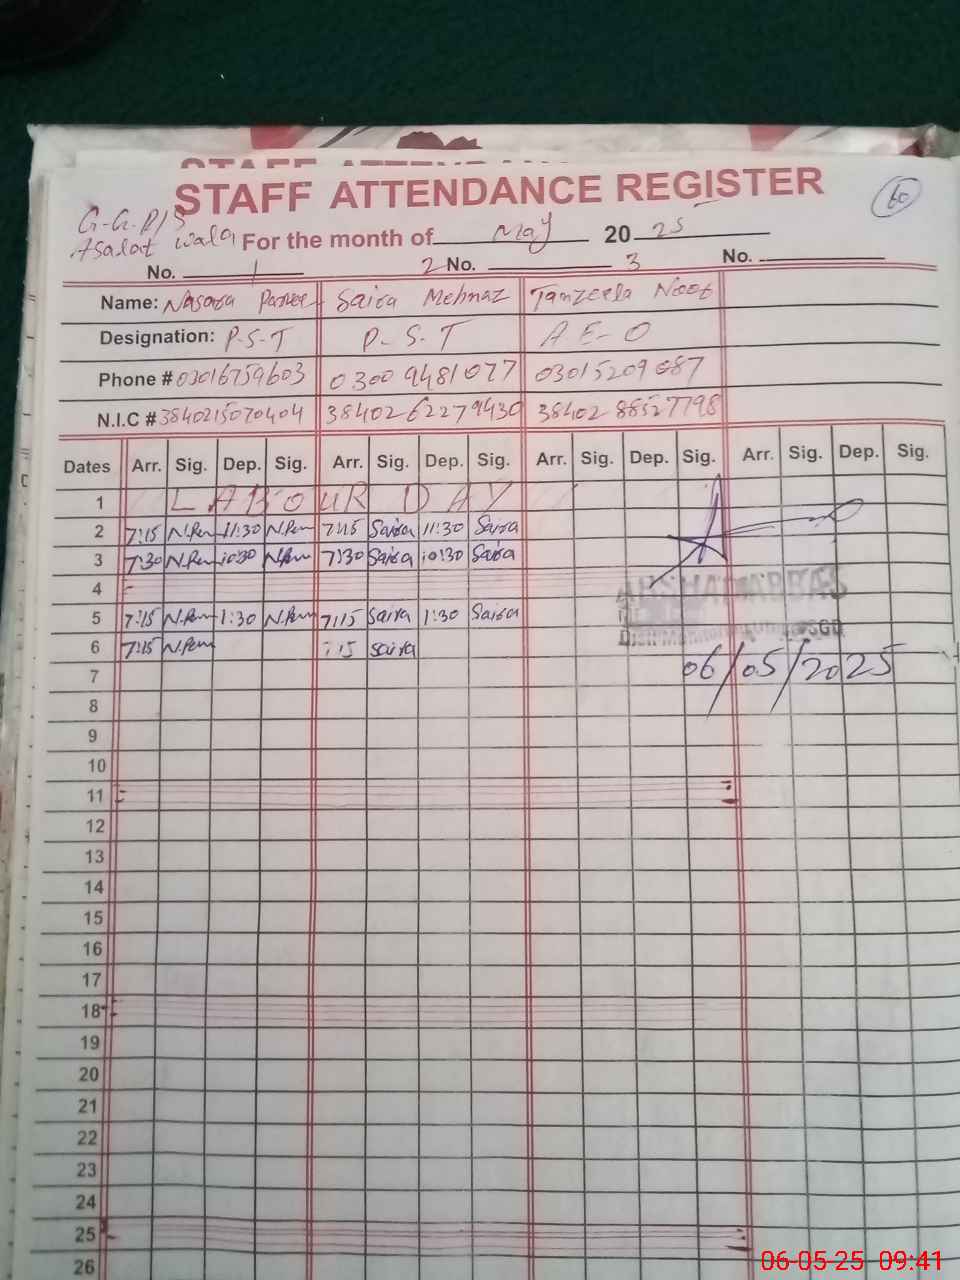 STAFF ATTENDANCE REGISTER
60
G-G.P/S
Asalat wala For the month of May 2025
No. 1 2 No. 3 No.
Name: Nasara Parvee Saira Mehnaz Tanzeela Noor
Designation: P-S-T P-S-T A E-O
Phone # 03016759603 0300 9481077 03015209087
N.I.C # 3840215070404 3840262279430 38402 88527798
Dates Arr. Sig. Dep. Sig. Arr. Sig. Dep. Sig. Arr. Sig. Dep. Sig. Arr. Sig. Dep. Sig.
1 LABOUR DAY
2 7:15 N.Pem 11:30 N.Pem 7:15 Saira 11:30 Saira
3 7:30 N.Pem 10:30 N.Pem 7:30 Saira 10:30 Saira
4
5 7:15 N.Pem 1:30 N.Pem 7:15 Saira 1:30 Saira
6 7:15 N.Pem 7:15 saira
ABBAS
SGD
06/05/2025
7
8
9
10
11
12
13
14
15
16
17
18
19
20
21
22
23
24
25
26
06-05-25 09:41